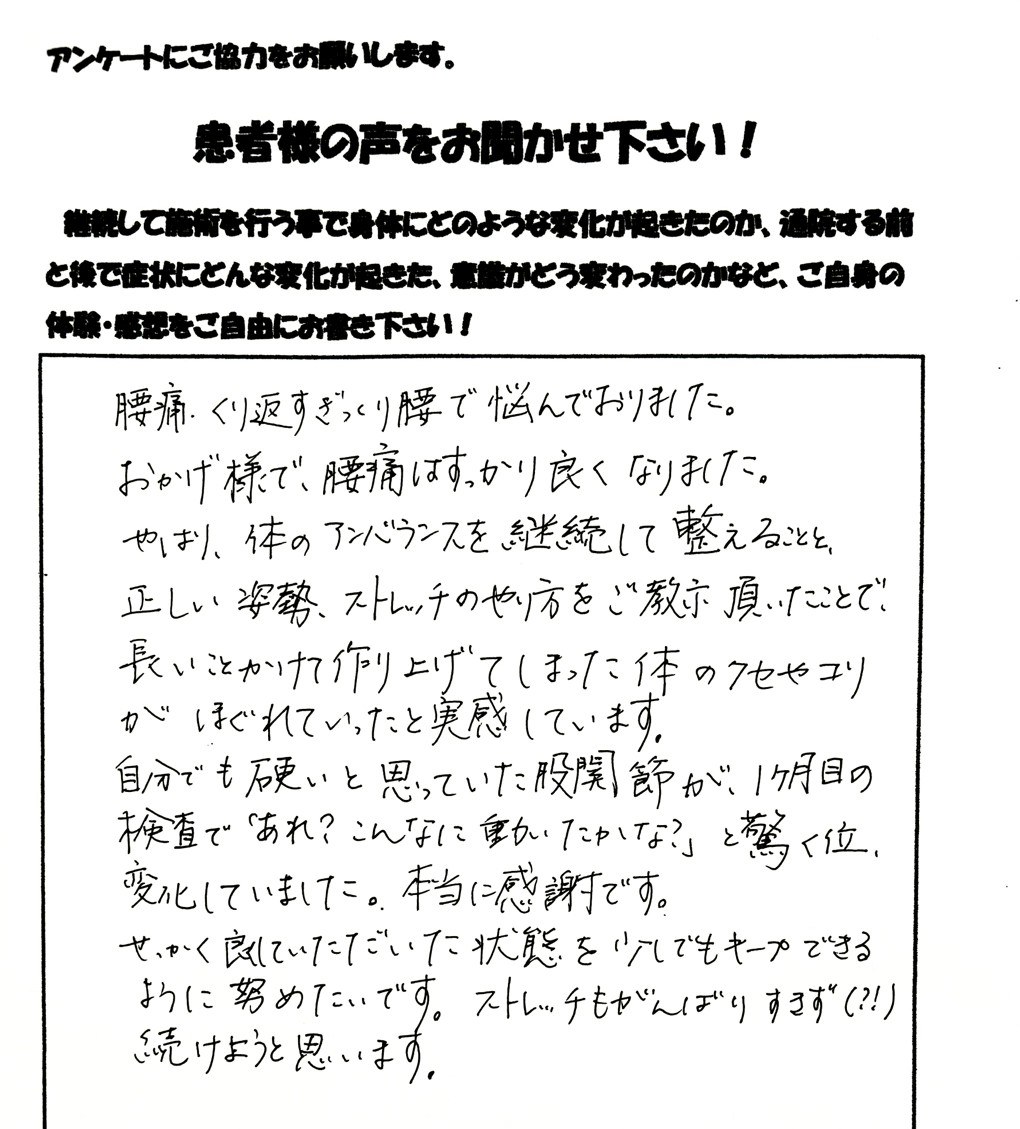 アンケートにご協力をお願いします。
患者様の声をお聞かせ下さい！
継続して施術を行う事で身体にどのような変化が起きたのか、通院する前
と後で症状にどんな変化が起きた、意識がどう変わったのかなど、ご自身の
体験・感想をご自由にお書き下さい！
腰痛、くり返すぎっくり腰で悩んでおりました。
おかげ様で、腰痛はすっかり良くなりました。
やはり、体のアンバランスを継続して整えることと、
正しい姿勢、ストレッチのやり方をご教示頂いたことで、
長いことかけて作り上げてしまった体のクセやコリ
がほぐれていったと実感しています。
自分でも硬いと思っていた股関節が、1ヶ月目の
検査で「あれ？こんなに動いたかな？」と驚く位、
変化していました。本当に感謝です。
せっかく良していただいた状態を少しでもキープできる
ように努めたいです。ストレッチもがんばりすぎず(?!)
続けようと思います。